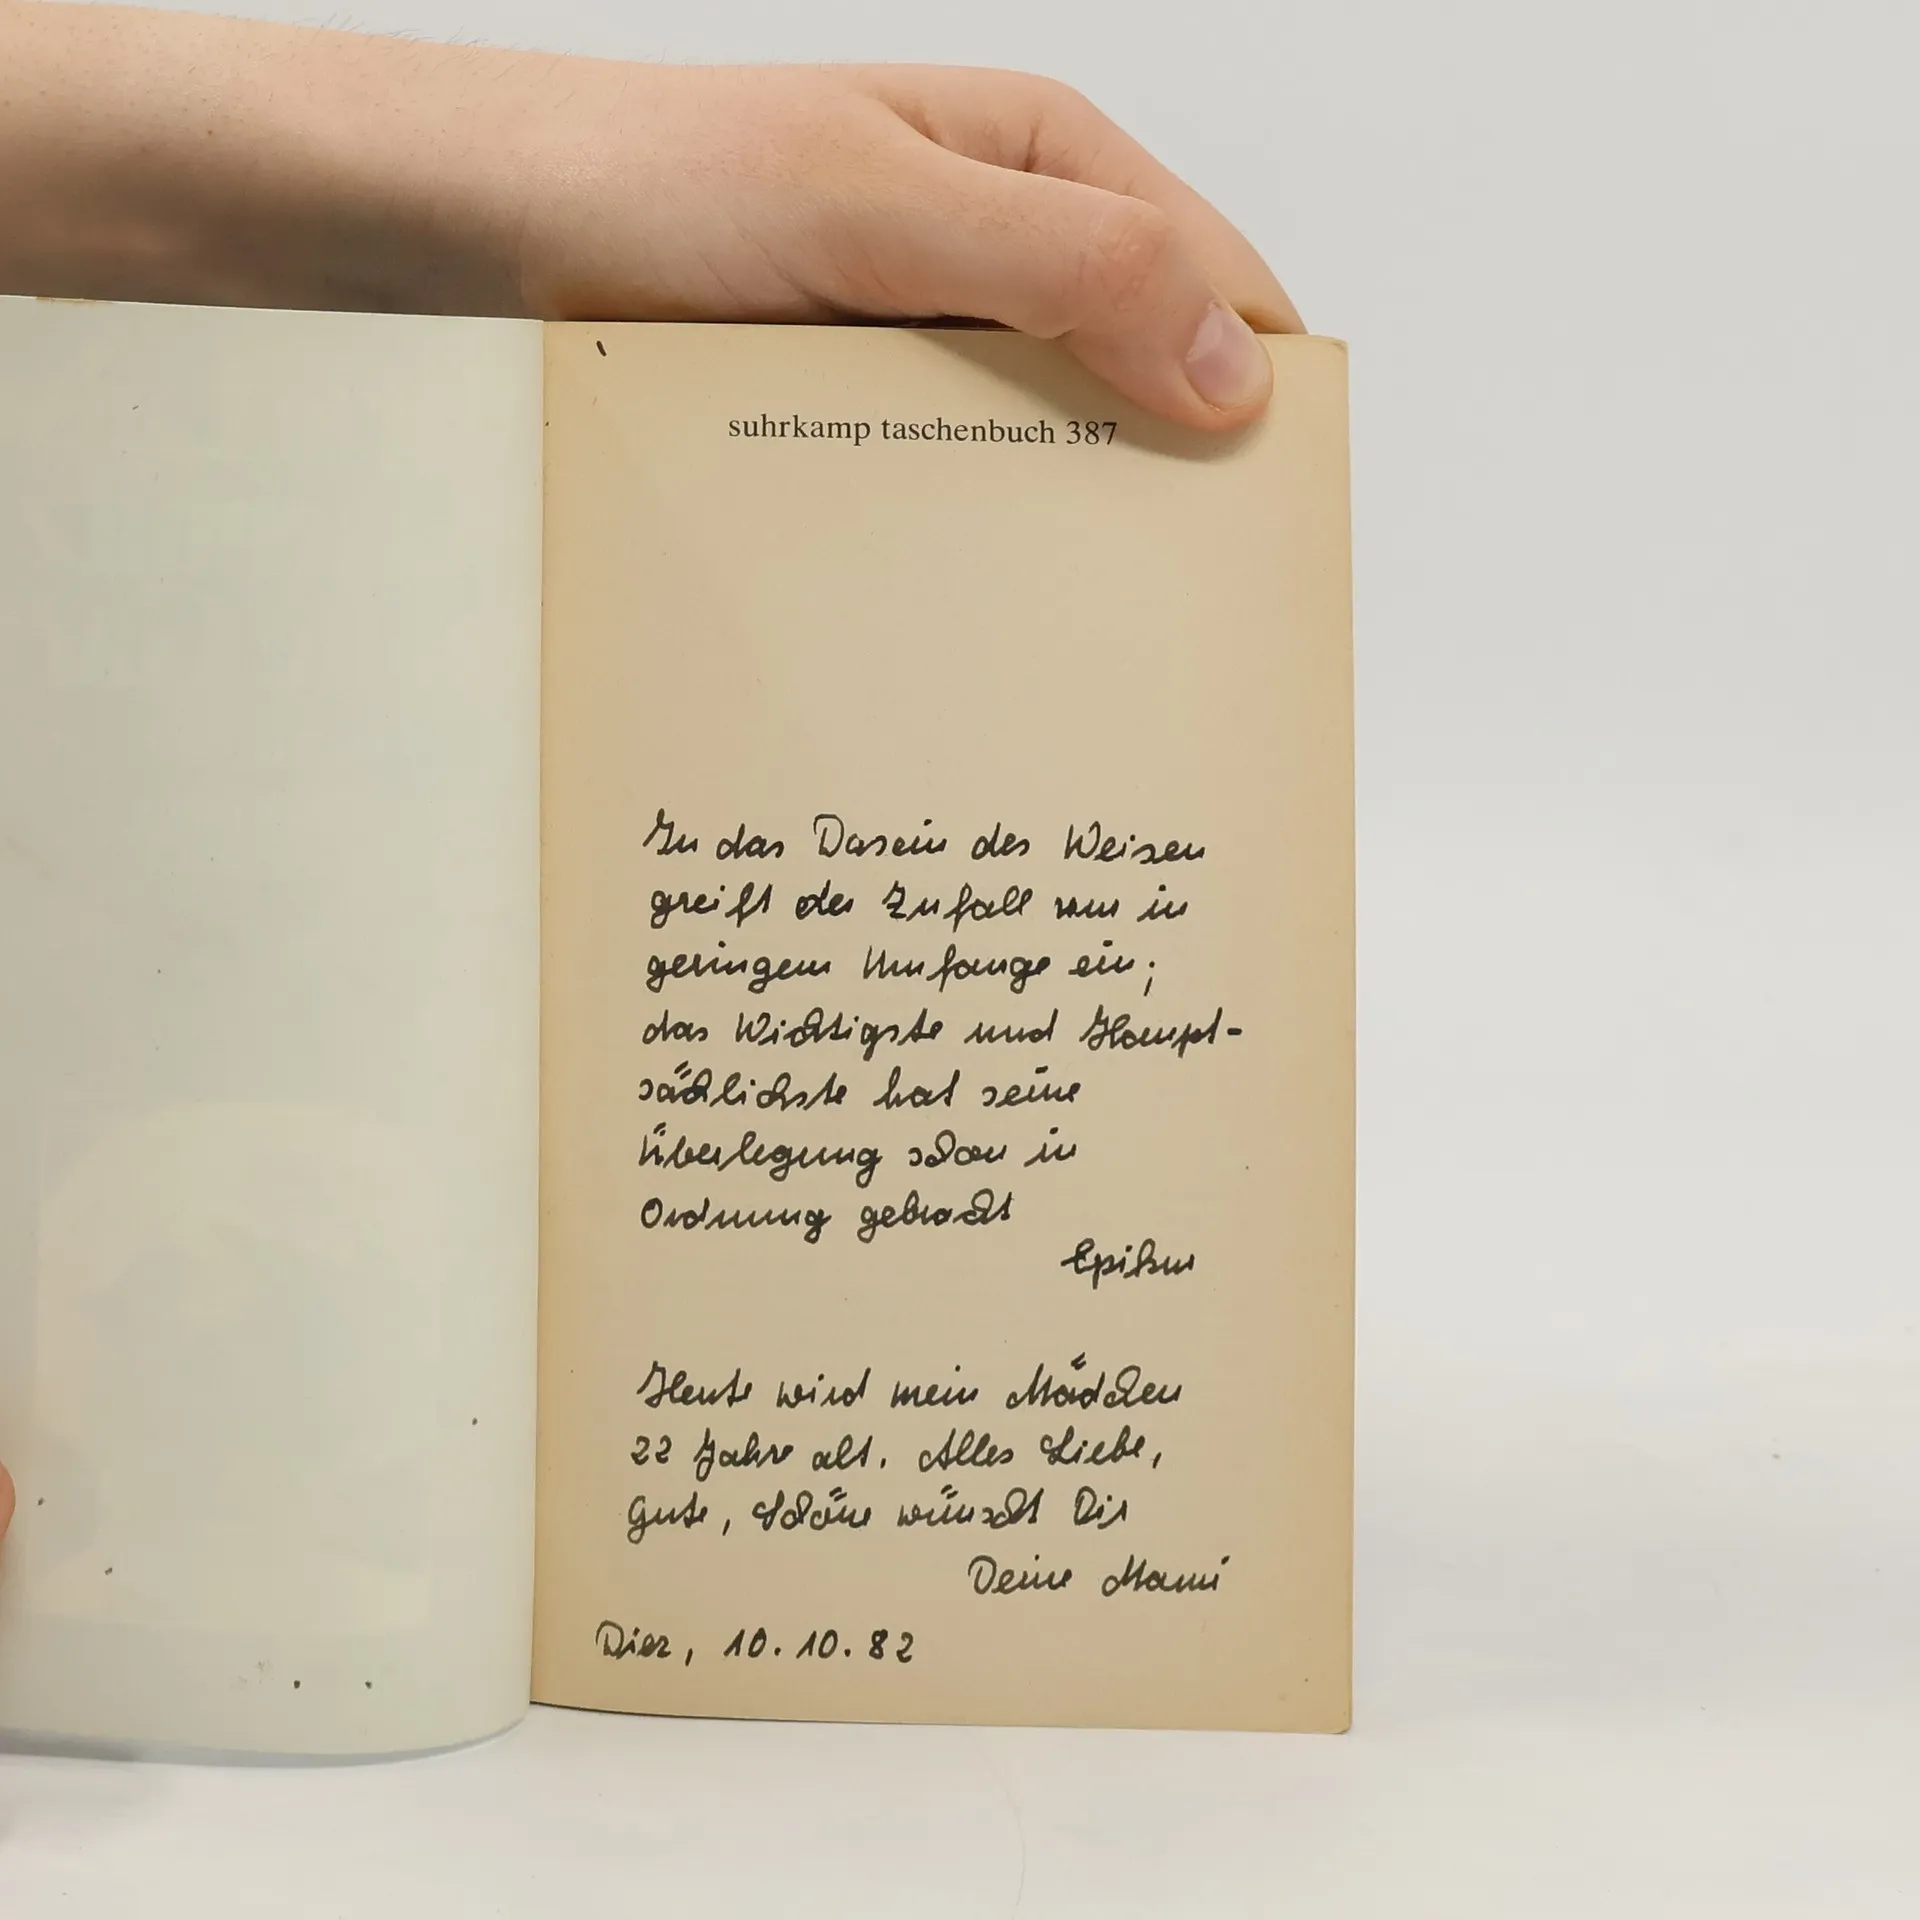 suhrkamp taschenbuch 387
In das Dasein des Weisen
greift der Zufall nur in
geringem Umfange ein;
das Wichtigste und Haupt-
sächlichste hat seine
Überlegung schon in
Ordnung gebracht
Epikur
Heute wird mein Mädchen
22 Jahre alt. Alles Liebe,
Gute, Schöne wünscht Dir
Deine Mami
Diez, 10.10.82